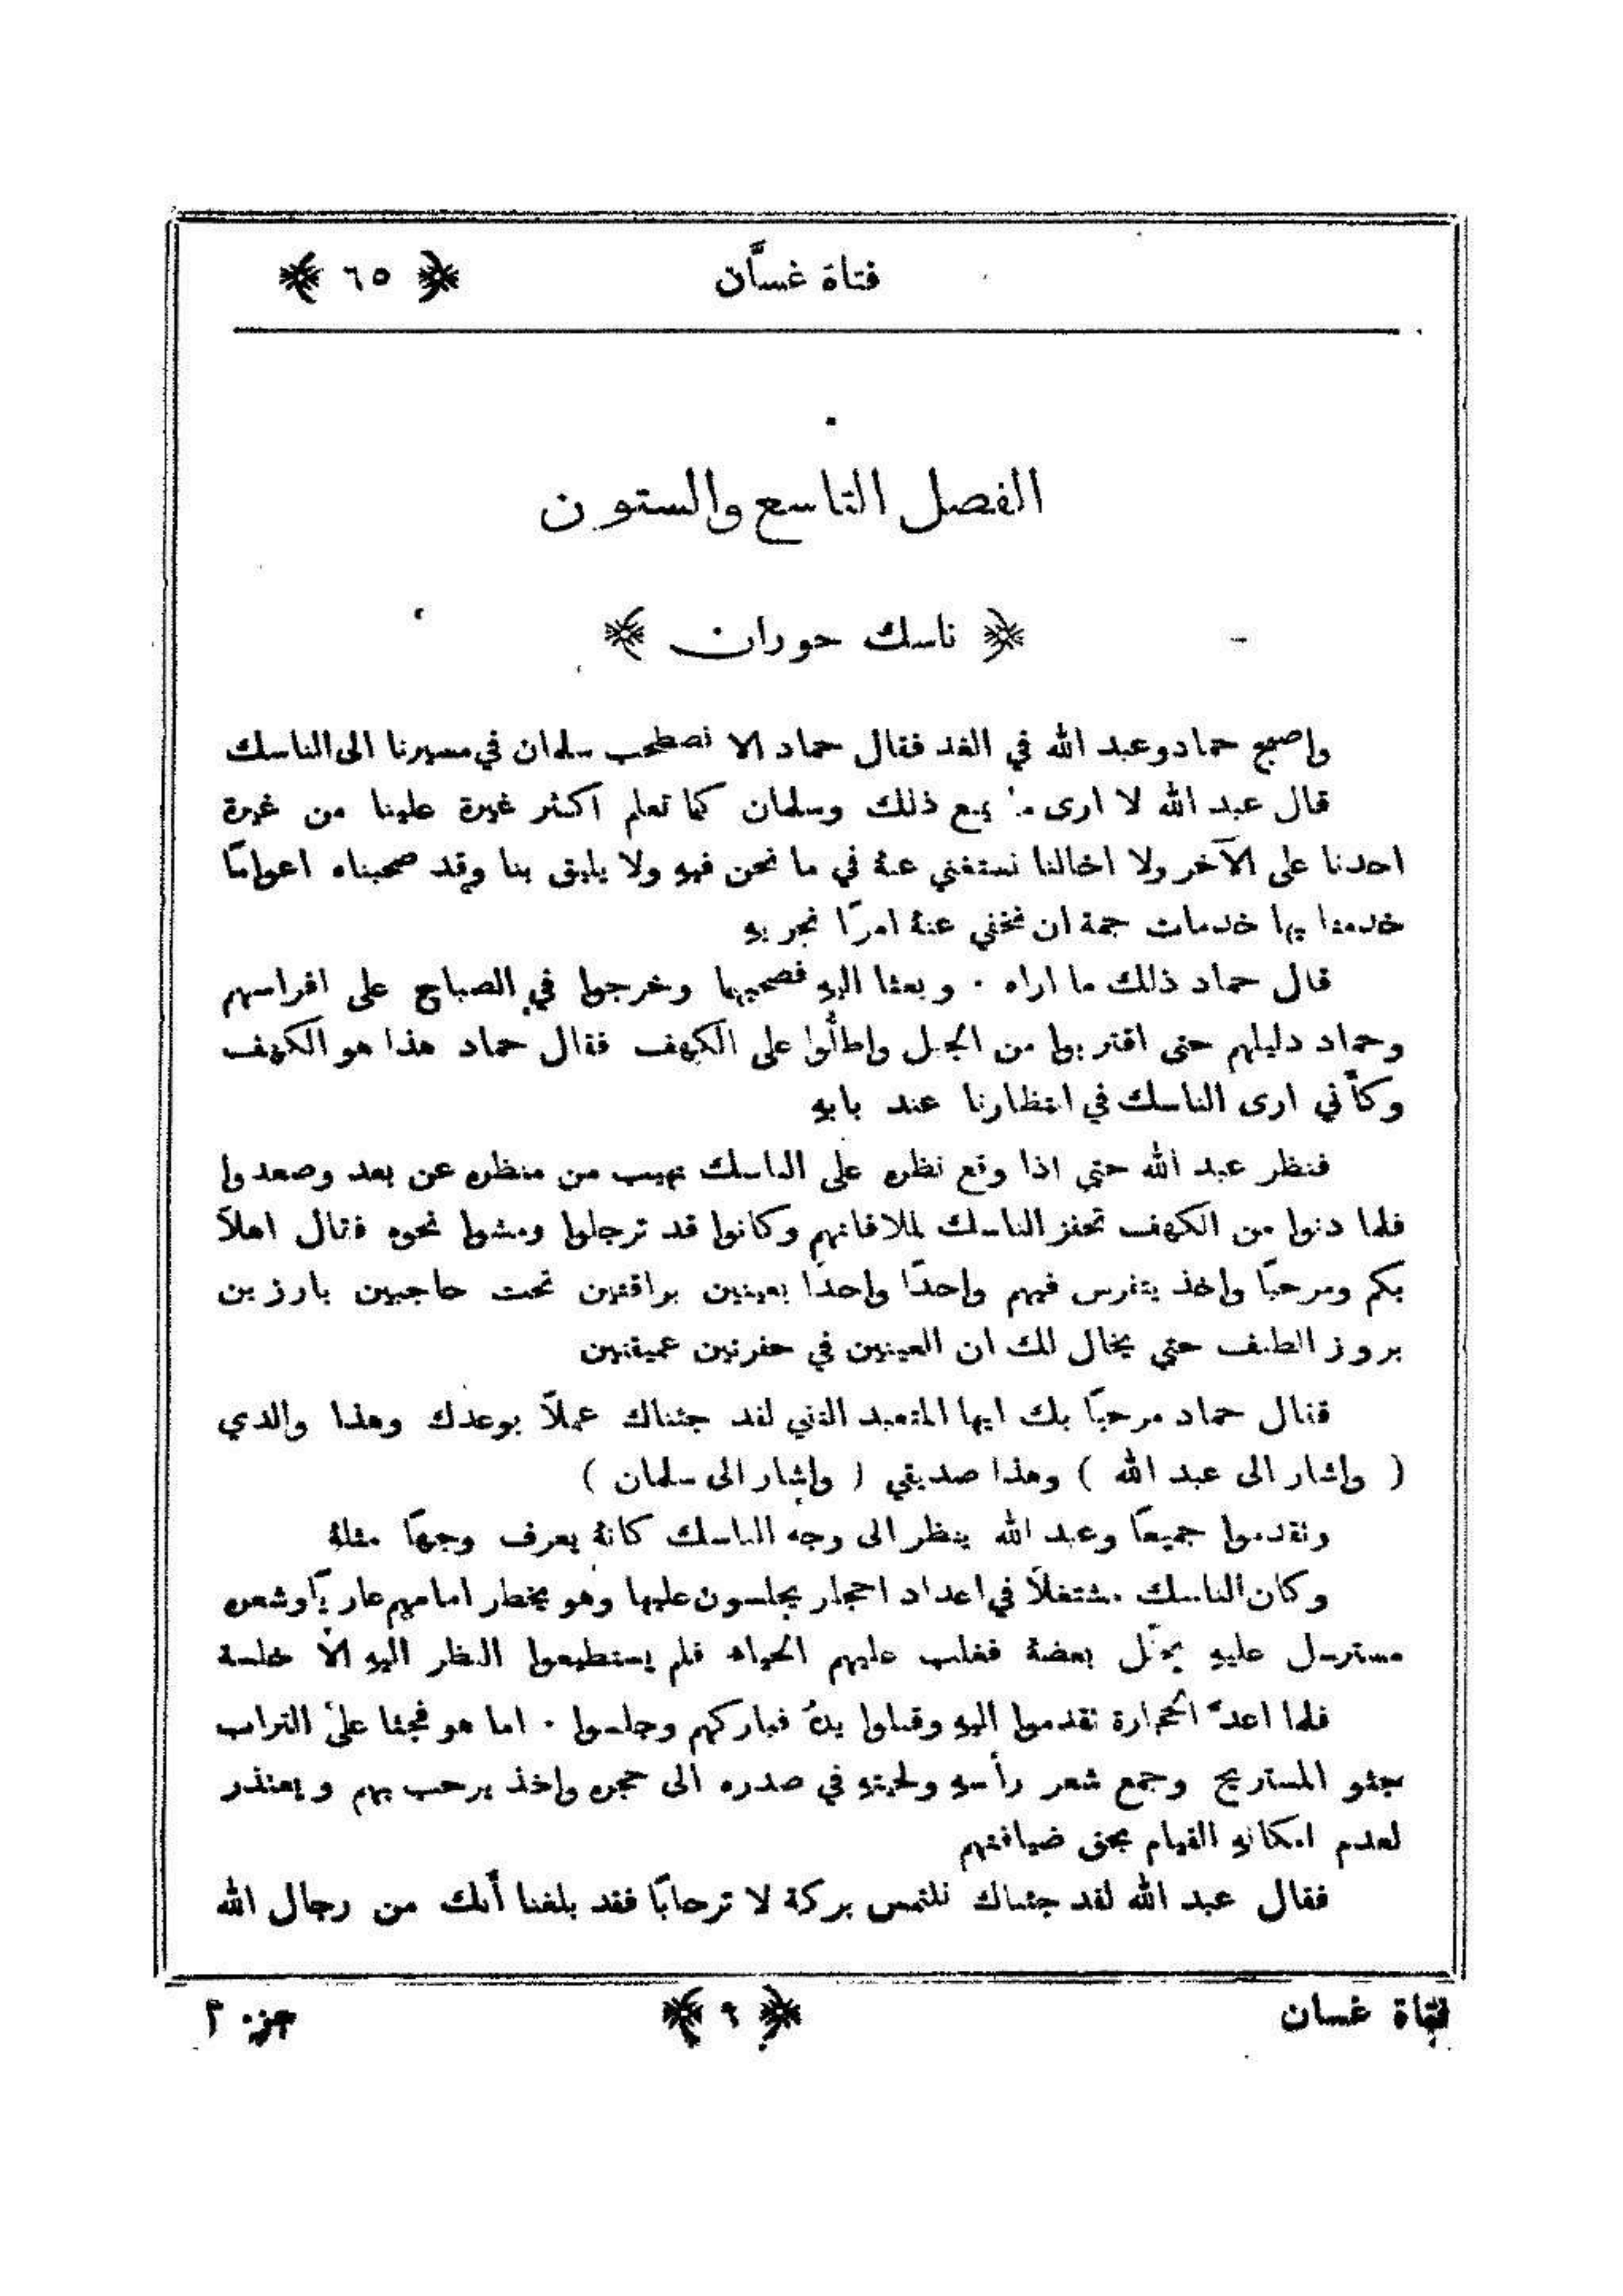 فتاة غسَّان
﴿ ٦٥ ﴾
الفصل التاسع والستون
﴿ ناسك حوران ﴾
واصبح حماد وعبد الله في الغد فقال حماد الا نصطحب سلمان في مسيرنا الى الناسك
قال عبد الله لا ارى ما يمنع ذلك وسلمان كما تعلم اكثر غيرة علينا من غيرة
احدنا على الآخر ولا اخالنا نستغني عنهُ في ما نحن فيهِ ولا يليق بنا وقد صحبناه اعوامًا
خدمنا بها خدمات جمة ان نخفي عنهُ امرًا نجريهِ
قال حماد ذلك ما اراه ٠ وبعثا اليهِ فصحبهما وخرجوا في الصباح على افراسهم
وحماد دليلهم حتى اقتربوا من الجبل واطلُّوا على الكهف فقال حماد هذا هو الكهف
وكأَني ارى الناسك في انتظارنا عند بابهِ
فنظر عبد الله حتى اذا وقع نظره على الناسك تهيب من منظره عن بعد وصعدوا
فلما دنوا من الكهف تحفز الناسك لملاقاتهم وكانوا قد ترجلوا ومشوا نحوه فقال اهلاً
بكم ومرحبًا واخذ يتفرس فيهم واحدًا واحدًا بعينين براقتين تحت حاجبين بارزين
بروز الطنف حتى يخال لك ان العينين في حفرتين عميقتين
فقال حماد مرحبًا بك ايها المتعبد التقي لقد جئناك عملاً بوعدك وهذا والدي
( واشار الى عبد الله ) وهذا صديقي ( واشار الى سلمان )
وتقدموا جميعًا وعبد الله ينظر الى وجه الناسك كانهُ يعرف وجهًا مثلهُ
وكان الناسك مشتغلاً في اعداد احجار يجلسون عليها وهو يخطر امامهم عاريًا وشعره
مسترسل عليهِ يجلّل بعضهُ فغلب عليهم الحياء فلم يستطيعوا النظر اليهِ الاَّ خلسة
فلما اعدَّ الحجارة تقدموا اليهِ وقبلوا يدهُ فباركهم وجلسوا ٠ اما هو فجثا على التراب
جثو المستريح وجمع شعر رأسهِ ولحيتهِ في صدره الى حجره واخذ يرحب بهم ويعتذر
لعدم امكانهِ القيام بحق ضيافتهم
فقال عبد الله لقد جئناك نلتمس بركة لا ترحابًا فقد بلغنا أنك من رجال الله
فتاة غسان
﴿ ٩ ﴾
جزء ٢